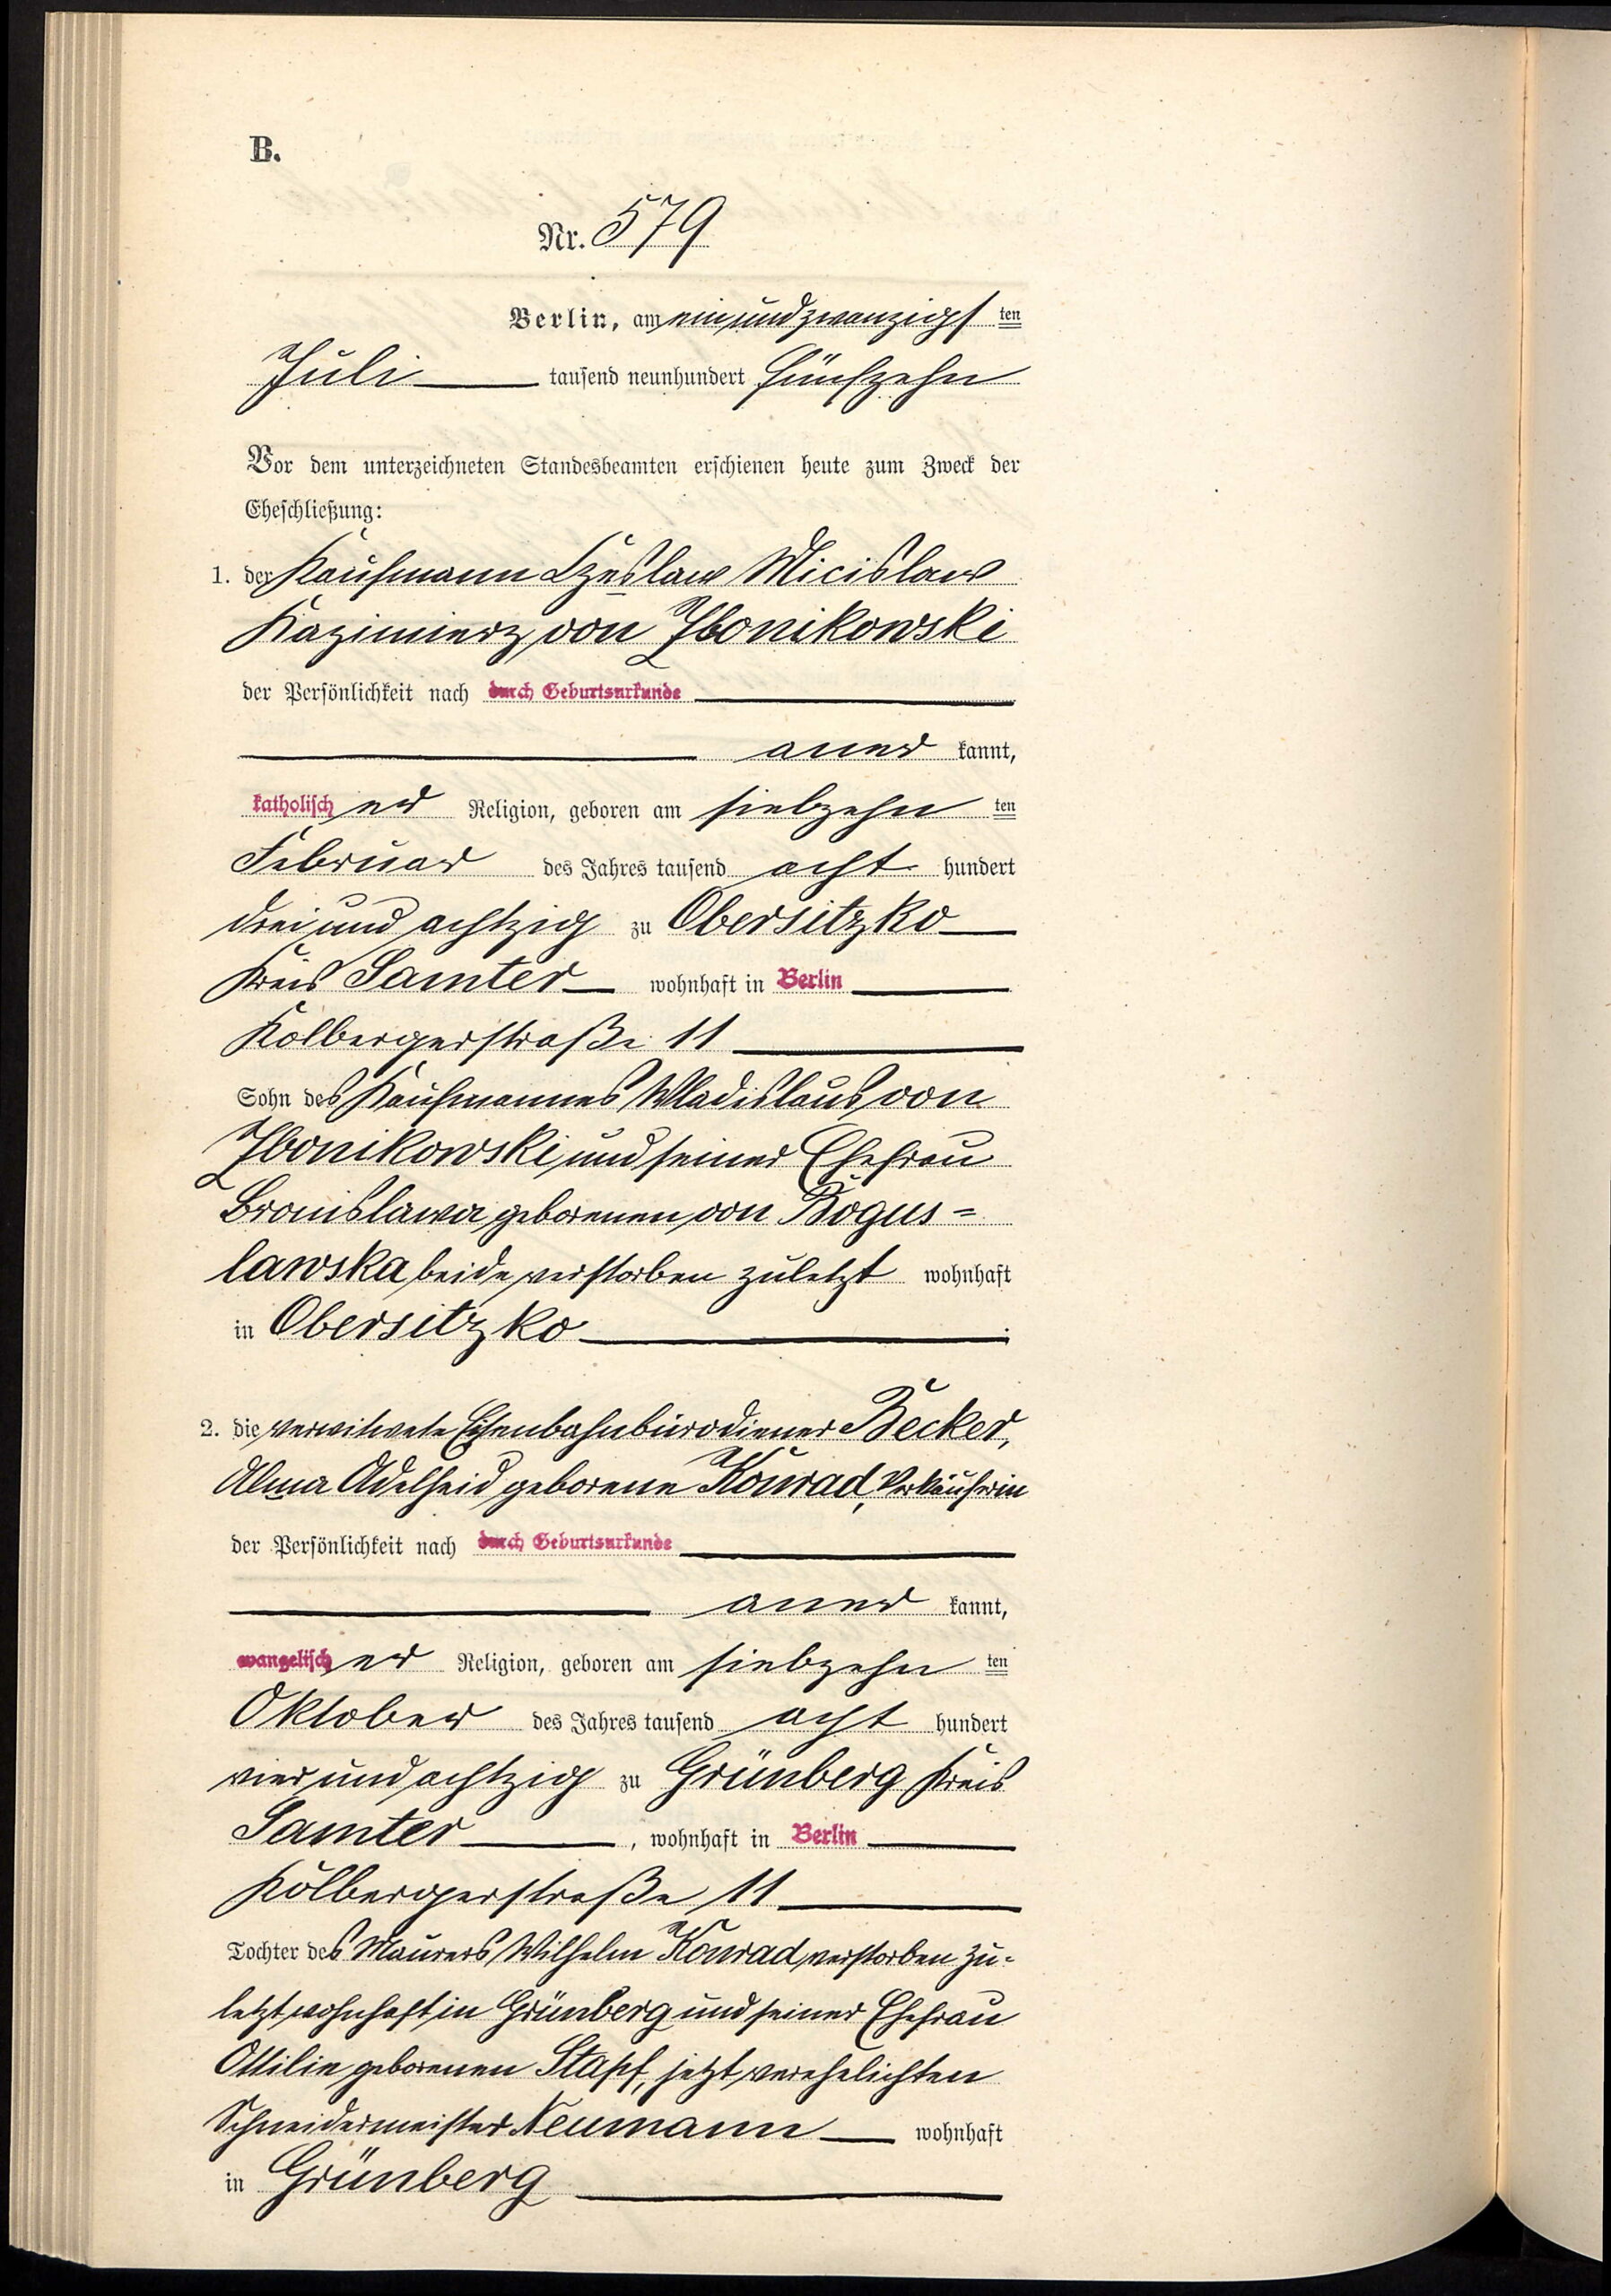 B.
Nr. 579
Berlin, am einundzwanzigsten
Juli tausend neunhundert fünfzehn
Vor dem unterzeichneten Standesbeamten erschienen heute zum Zweck der
Eheschließung:
1. der Kaufmann Czeslaw Micislaw
Kazimierz von Zbonikowski
der Persönlichkeit nach durch Geburtsurkunde
aner kannt,
katholischer Religion, geboren am siebzehn ten
Februar des Jahres tausend acht hundert
dreiundachtzig zu Obersitzko
Kreis Samter wohnhaft in Berlin
Kolbergerstraße 11
Sohn des Kaufmannes Wladislaus von
Zbonikowski und seiner Ehefrau
Bronislawa geborenen von Bogus=
lawska beide verstorben zuletzt wohnhaft
in Obersitzko.
2. die verwitwete Eisenbahnbürodiener Becker,
Alma Adelheid geborene Konrad, Verkäuferin
der Persönlichkeit nach durch Geburtsurkunde
aner kannt,
evangelischer Religion, geboren am siebzehn ten
Oktober des Jahres tausend acht hundert
vierundachtzig zu Grünberg Kreis
Samter, wohnhaft in Berlin
Kolbergerstraße 11
Tochter des Maurers Wilhelm Konrad verstorben zu=
letzt wohnhaft in Grünberg und seiner Ehefrau
Ottilie geborenen Stapf, jetzt verehelichten
Schneidermeister Neumann wohnhaft
in Grünberg